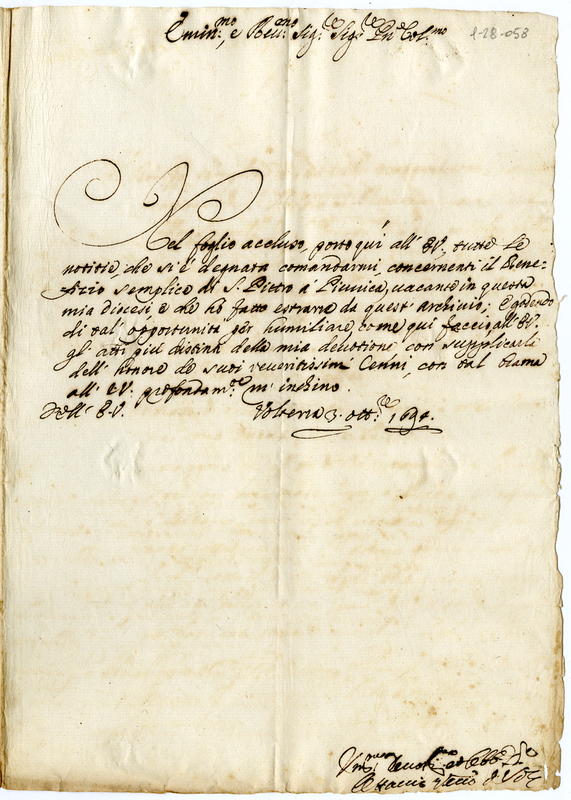 Emin.mo e Rev.mo Sig.re Sig.re P.ne Col.mo
1-28-058
Nel foglio accluso, porto quì all' E.V. tutte le
notitie, che si è degnata comandarmi, concernenti il Bene-
fizio semplice di S. Pietro à vacante in questa
mia diocesi, e che hò fatto estrarre da quest' archivio; e godendo
di tal' opportunità per humiliare, come qui faccio all' E.V.
gl' atti più distinti della mia devotione con supplicarla
dell' honore de suoi reveritissimi Cenni, con tal brama
all' E.V. profondam.te m' inchino.
Dell' E.V. Volterra 3. ott.re 169